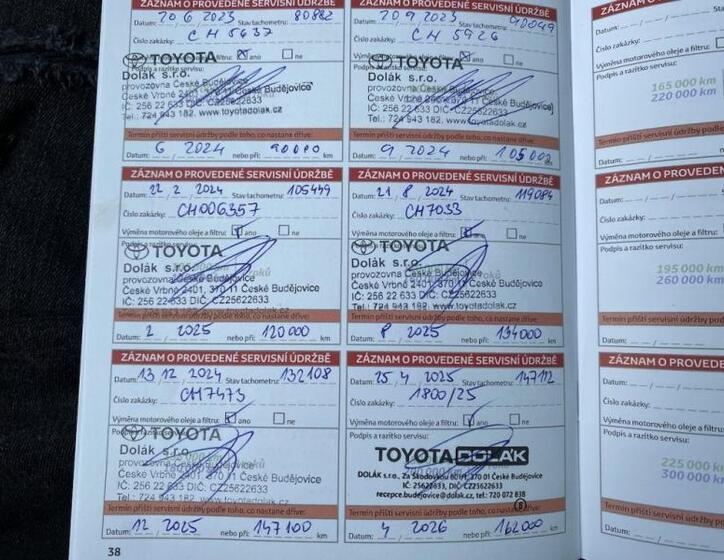 ZÁZNAM O PROVEDENÉ SERVISNÍ ÚDRŽBĚ
Datum: 20 6 2023 Stav tachometru: 80882
Číslo zakázky: CH 5637
filtru: ano ne
TOYOTA
Podpis a razítko servisu:
Dolák s.r.o.
provozovna České Budějovice
České Vrbné 2401
IČ: 256 22 633 DIČ: CZ25622633
Tel.: 724 943 182, www.toyotadolak.cz
Termín příští servisní údržby podle toho, co nastane dříve:
Datum: 6 2024 nebo při: 90000 km
ZÁZNAM O PROVEDENÉ SERVISNÍ ÚDRŽBĚ
Datum: 20 9 2023 Stav tachometru: 90049
Číslo zakázky: CH 5926
Výměna motorového oleje a filtru: ano ne
TOYOTA
Podpis a razítko servisu:
Dolák s.r.o.
provozovna České Budějovice
IČ: 256 22 633 DIČ: CZ25622633
Tel.: 724 943 182, www.toyotadolak.cz
Termín příští servisní údržby podle toho, co nastane dříve:
Datum: 9 2024 nebo při: 105000 km
ZÁZNAM O PROVEDENÉ SERVISNÍ ÚDRŽBĚ
Datum: 22 2 2024 Stav tachometru: 105449
Číslo zakázky: CH006357
Výměna motorového oleje a filtru: ano ne
Podpis a razítko servisu:
TOYOTA
Dolák s.r.o.
provozovna České Budějovice
České Vrbné 2401, 370 11 České Budějovice
IČ: 256 22 633 DIČ: CZ25622633
Termín příští servisní údržby podle toho, co nastane dříve:
Datum: 2 2025 nebo při: 120000 km
ZÁZNAM O PROVEDENÉ SERVISNÍ ÚDRŽBĚ
Datum: 21 8 2024 Stav tachometru: 119084
Číslo zakázky: CH7033
Výměna motorového oleje a filtru: ano ne
TOYOTA
Dolák s.r.o.
provozovna České Budějovice
České Vrbné 2401, 370 11
IČ: 256 22 633 DIČ: CZ25622633
Tel.: 724 943 182, www.toyotadolak.cz
Termín příští servisní údržby podle toho, co nastane dříve:
Datum: 8 2025 nebo při: 134000 km
ZÁZNAM O PROVEDENÉ SERVISNÍ ÚDRŽBĚ
Datum: 13 12 2024 Stav tachometru: 132108
Číslo zakázky: CH7473
Výměna motorového oleje a filtru: ano ne
TOYOTA
Dolák s.r.o.
provozovna České Budějovice
České Vrbné 2401, 370 11 České Budějovice
IČ: 256 22 633 DIČ: CZ25622633
Tel.: 724 943 182, www.toyotadolak.cz
Termín příští servisní údržby podle toho, co nastane dříve:
Datum: 12 2025 nebo při: 147100 km
ZÁZNAM O PROVEDENÉ SERVISNÍ ÚDRŽBĚ
Datum: 25 4 2025 Stav tachometru: 147112
Číslo zakázky: 1800/25
Výměna motorového oleje a filtru: ano ne
Podpis a razítko servisu:
TOYOTA DOLÁK
DOLÁK s.r.o., Za Škodovkou 370 01 České Budějovice
IČ: 25622633, DIČ: CZ25622633
recepce.budejovice@dolak.cz, tel.: 720 072 838
Termín příští servisní údržby podle toho, co nastane dříve:
Datum: 4 2026 nebo při: 162000 km
38
ZÁZNAM O PROVEDENÉ
Datum:
Číslo zakázky:
Výměna motorového oleje a
Podpis a razítko servisu:
165 000 km
220 000 km
Termín příští servisní údržby
Datum:
ZÁZNAM O PROVEDENÉ
Datum:
Číslo zakázky:
Výměna motorového oleje a
Podpis a razítko servisu:
195 000 km
260 000 km
Termín příští servisní údržby po
Datum:
ZÁZNAM O PROVEDENÉ
Datum:
Číslo zakázky:
Výměna motorového oleje a
Podpis a razítko servisu:
225 000 km
300 000 km
Termín příští servisní údržby
Datum: